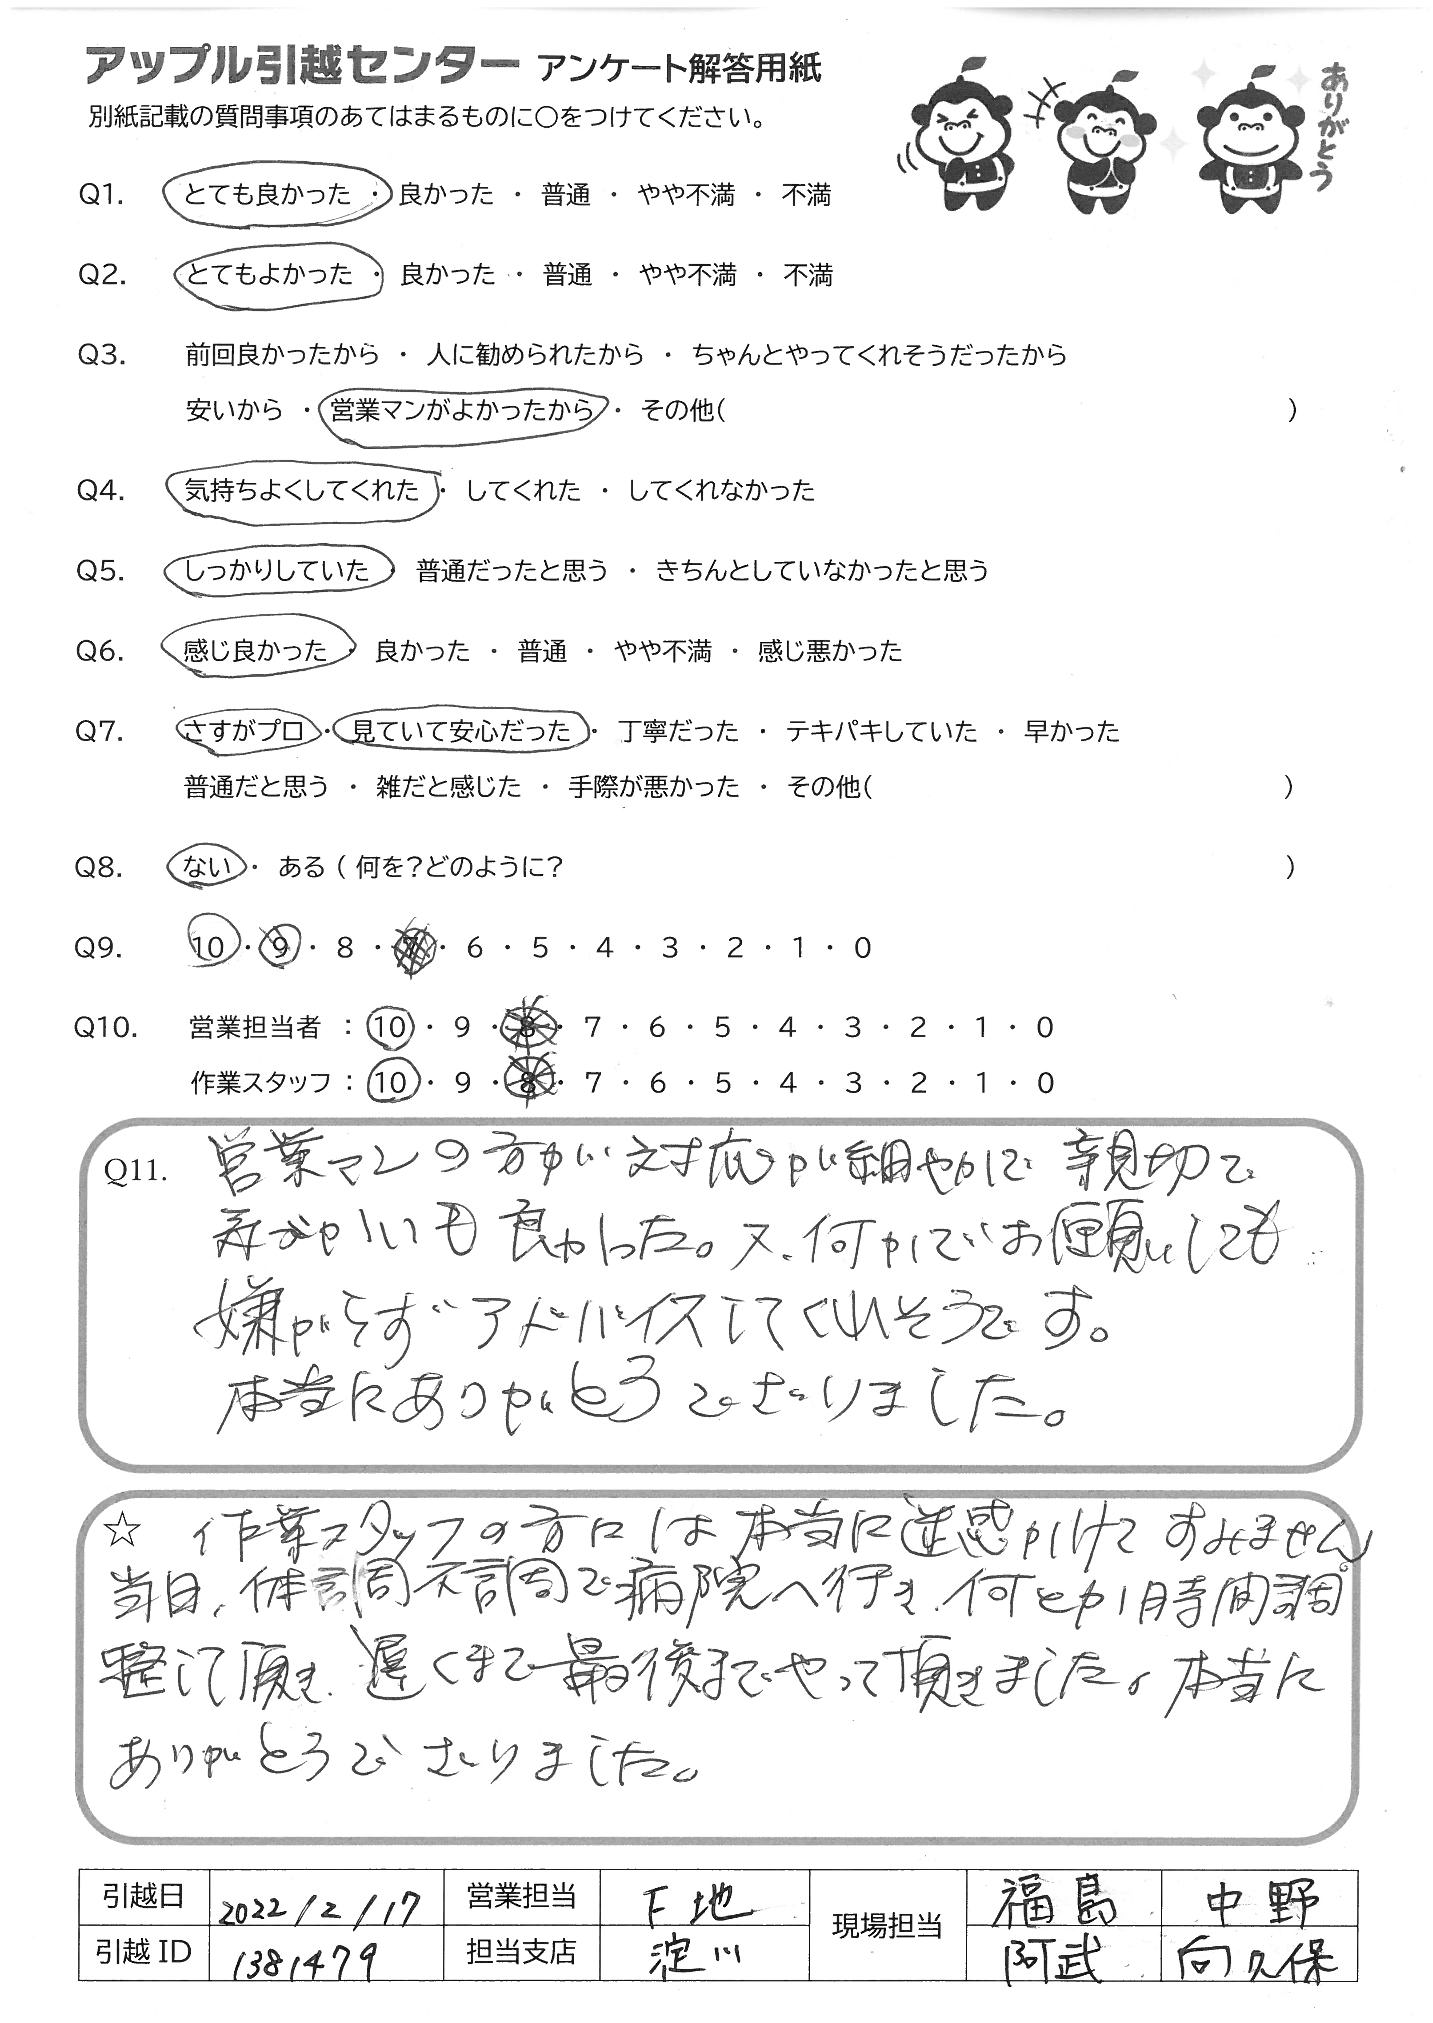 アップル引越センター アンケート解答用紙
別紙記載の質問事項のあてはまるものに〇をつけてください。
ありがとう
Q1. とても良かった ・ 良かった ・ 普通 ・ やや不満 ・ 不満
Q2. とてもよかった ・ 良かった ・ 普通 ・ やや不満 ・ 不満
Q3. 前回良かったから ・ 人に勧められたから ・ ちゃんとやってくれそうだったから
安いから ・ 営業マンがよかったから ・ その他( )
Q4. 気持ちよくしてくれた ・ してくれた ・ してくれなかった
Q5. しっかりしていた 普通だったと思う ・ きちんとしていなかったと思う
Q6. 感じ良かった ・ 良かった ・ 普通 ・ やや不満 ・ 感じ悪かった
Q7. さすがプロ ・ 見ていて安心だった ・ 丁寧だった ・ テキパキしていた ・ 早かった
普通だと思う ・ 雑だと感じた ・ 手際が悪かった ・ その他( )
Q8. ない ・ ある ( 何を?どのように? )
Q9. 10 ・ 9 ・ 8 ・ 7 ・ 6 ・ 5 ・ 4 ・ 3 ・ 2 ・ 1 ・ 0
Q10. 営業担当者 : 10 ・ 9 ・ 8 ・ 7 ・ 6 ・ 5 ・ 4 ・ 3 ・ 2 ・ 1 ・ 0
作業スタッフ : 10 ・ 9 ・ 8 ・ 7 ・ 6 ・ 5 ・ 4 ・ 3 ・ 2 ・ 1 ・ 0
Q11. 営業マンの方が対応が細やかで親切で
気づかいも良かった。又、何かでお願いしても
嫌がらずアドバイスしてくれそうです。
本当にありがとうございました。
☆ 作業スタッフの方には本当に迷惑かけてすみません。
当日、体調不調で病院へ行き、何とか時間調
整して頂き、遅くまで最後までやって頂きました。本当に
ありがとうございました。
引越日 2022/2/17 営業担当 下地 現場担当 福島 中野
引越ID 1381479 担当支店 淀川 阿武 向久保